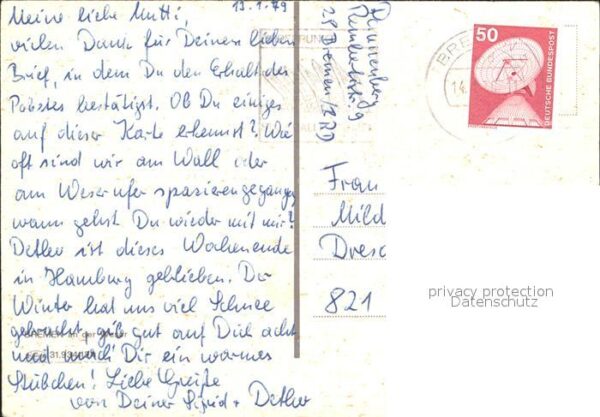 13.1.79
Meine liebe Mutti,
vielen Dank für Deinen lieben
Brief, in dem Du den Erhalt des
Paketes bestätigst. Ob Du einiges
auf dieser Karte erkennst? Wie
oft sind wir am Wall oder
am Weserufer spazierengegangen,
wann gehst Du wieder mit mir?
Detlev ist dieses Wochenende
in Hamburg geblieben. Der
Winter hat uns viel Schnee
gebracht, gib gut auf Dich acht
und mach' Dir ein warmes
Stübchen! Liebe Grüße
von Deiner Sigrid + Detlev
BREMEN an der Weser
31.9
28 Bremen/BRD
BRE
14.
50
DEUTSCHE BUNDESPOST
Frau
Mild
Dresd
821
privacy protection
Datenschutz